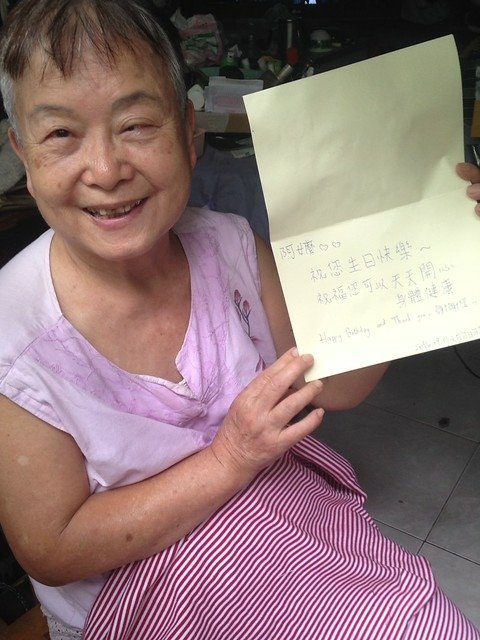 阿嬤♡♡
祝您生日快樂～
祝福您可以天天開心
身體健康
Happy Birthday and Thank you.